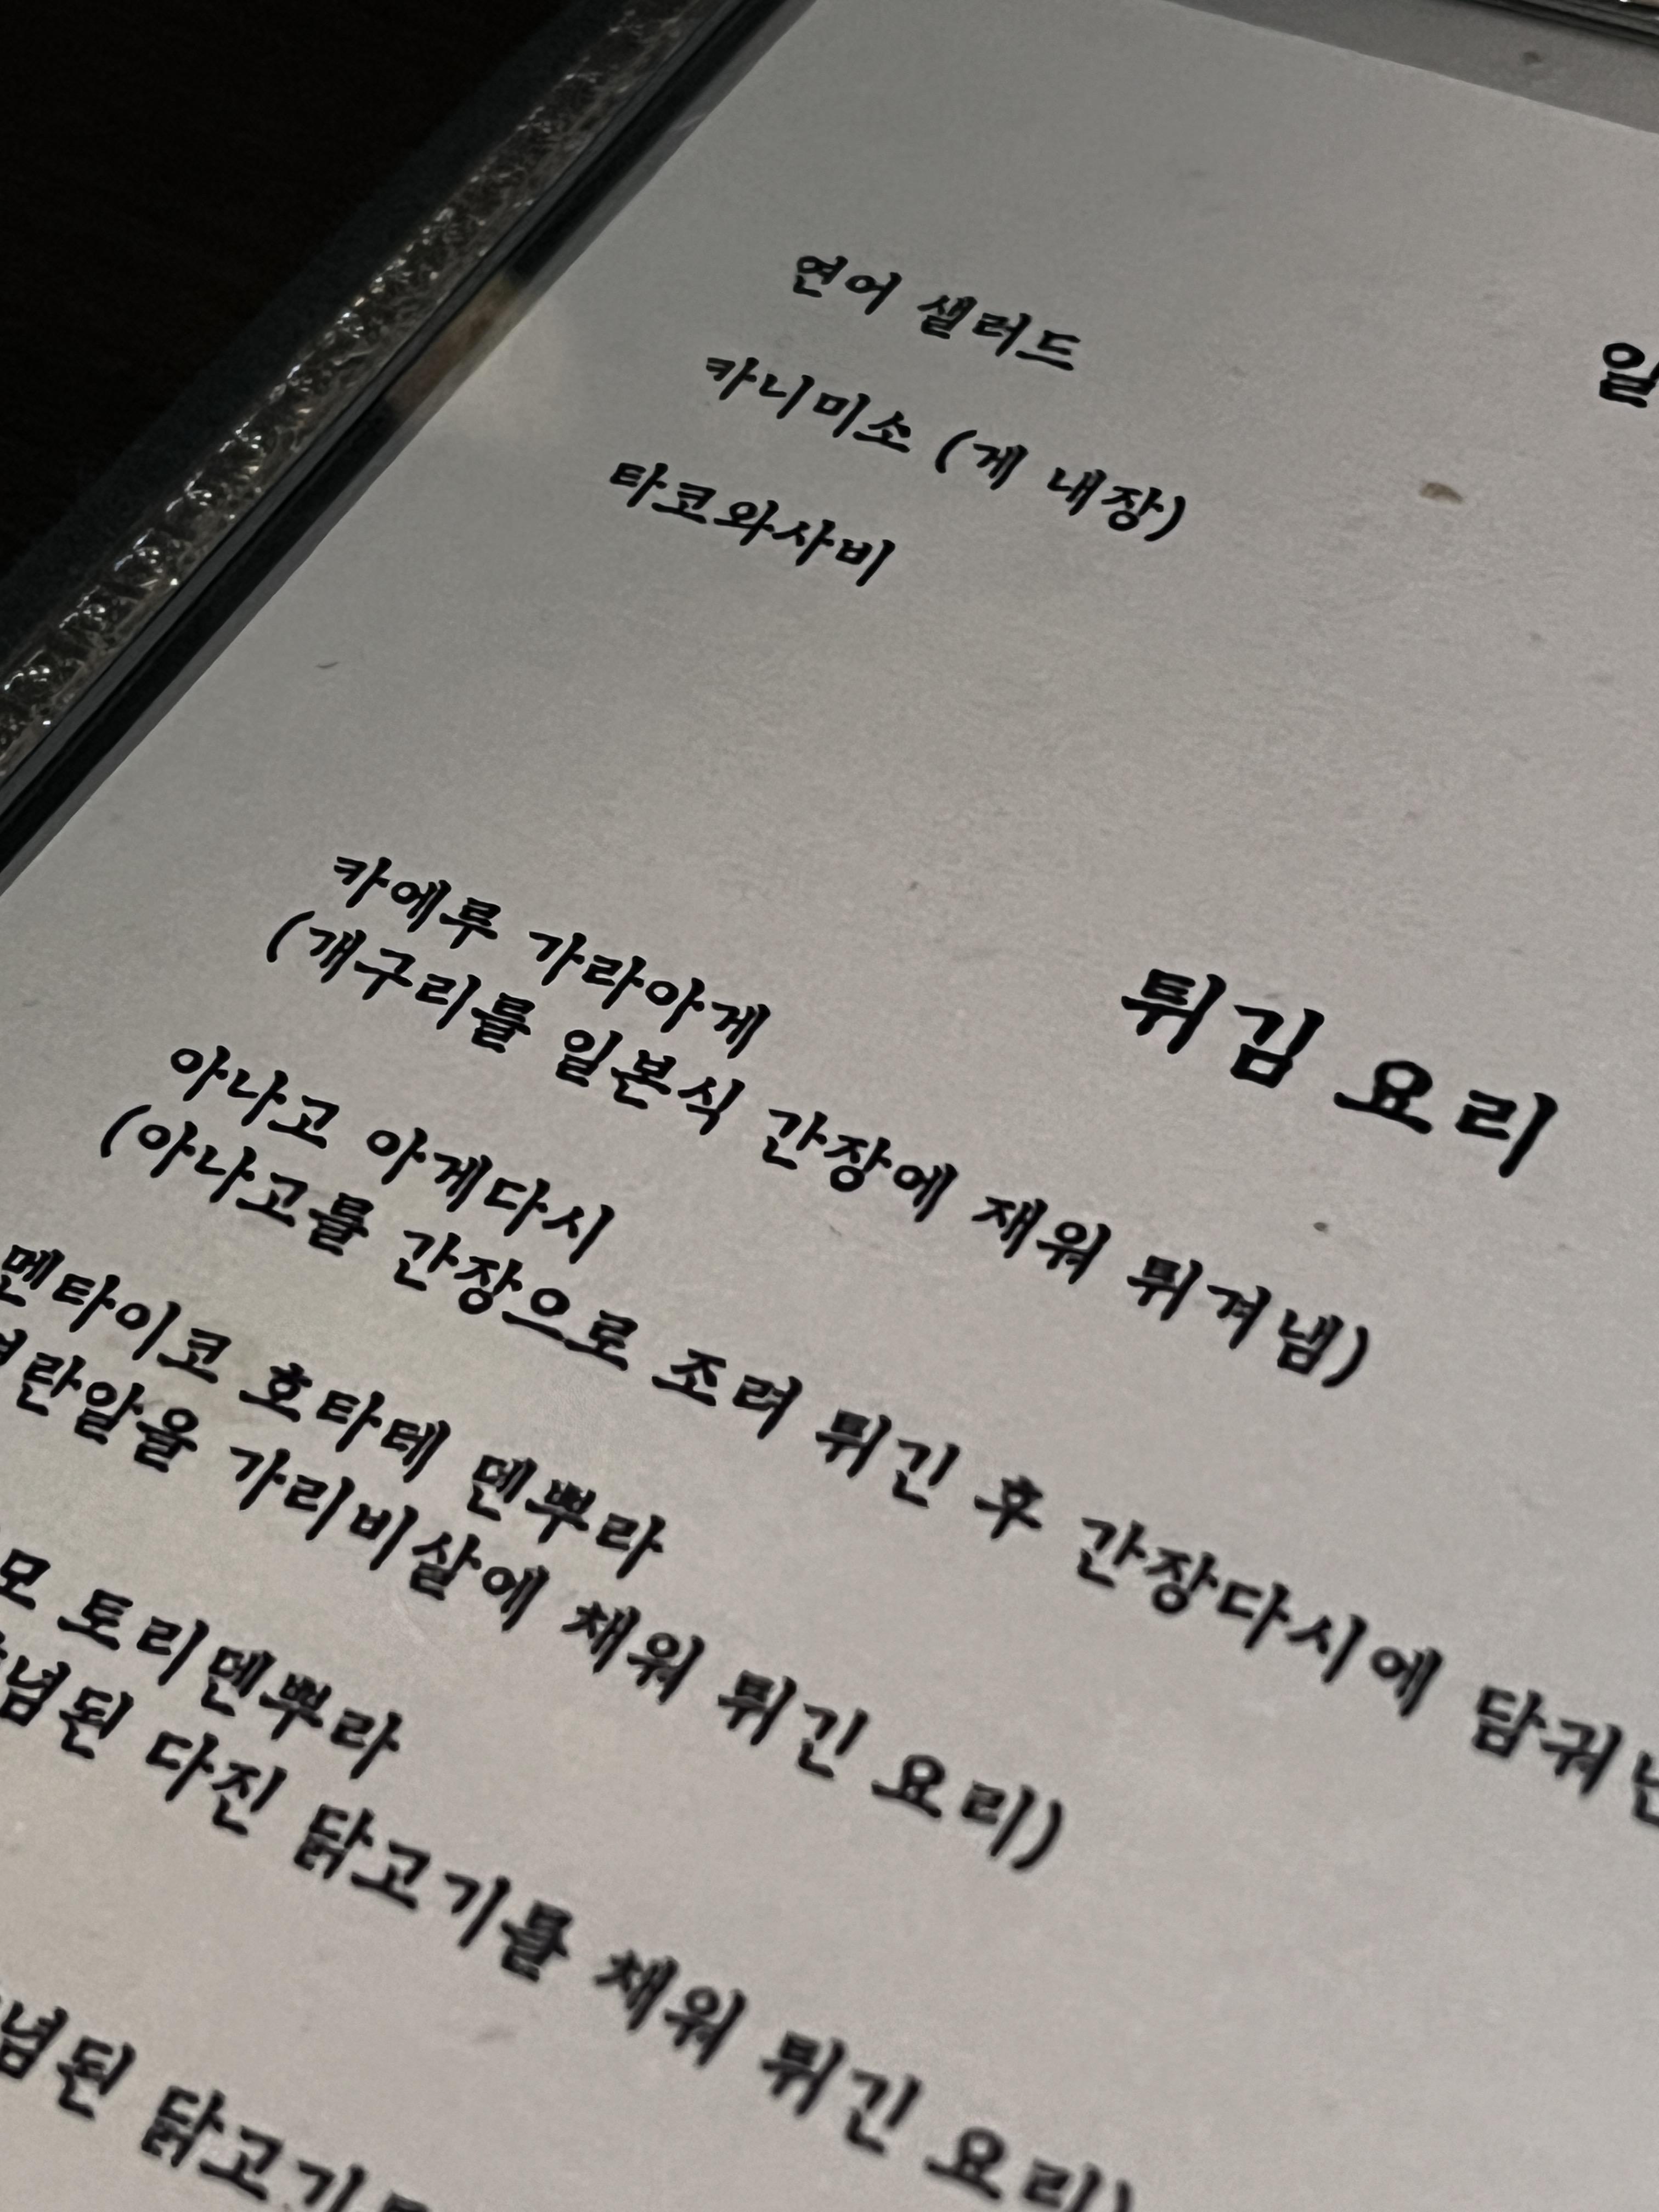 연어 샐러드
카니미소 (게 내장)
타코와사비
튀김 요리
카에루 가라아게
(개구리를 일본식 간장에 재워 튀겨냄)
아나고 아게다시
(아나고를 간장으로 조려 튀긴 후 간장다시에 담궈
멘타이코 호타테 덴뿌라
가리비살에 채워 튀긴 요리)
토리덴뿌라
다진 닭고기를 채워 튀긴 요리)